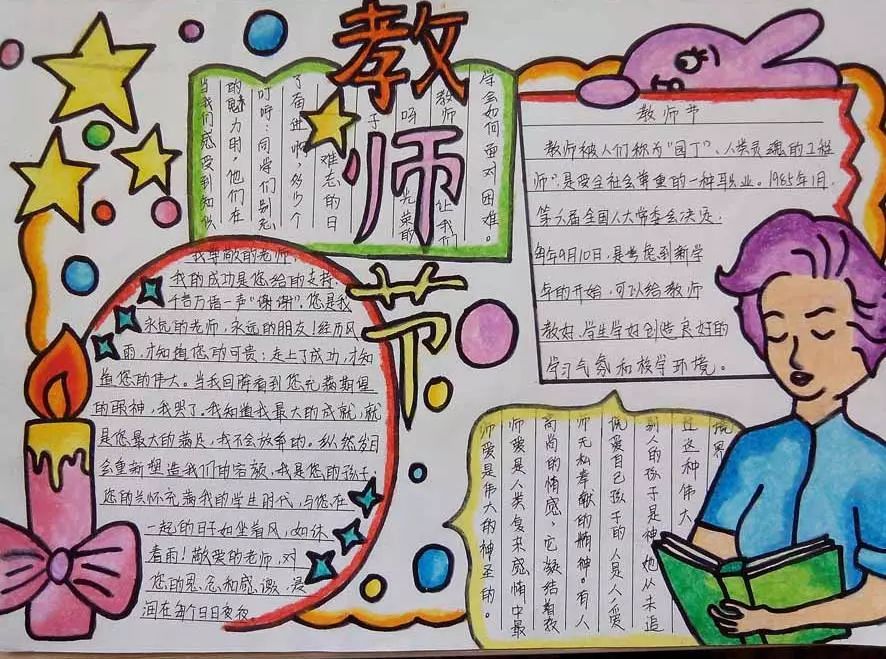 教师节
学会如何面对困难。
教师
让我们
呀
光荣的
子
难忘的日
了奋进啊，多少个
叮咛：同学们别忘
的魅力时，他们在
当我们感受到知识
教师节
教师被人们称为“园丁”、人类灵魂的工程
师”，是受全社会尊重的一种职业。1985年1月，
第六届全国人大常委会决定，
每年9月10日，是考虑到新学
年的开始，可以给教师
教好、学生学好创造良好的
学习气氛和校学环境。
我尊敬的老师
我的成功是您给的支持，
千言万语一声“谢谢”。您是我
永远的老师，永远的朋友！经历风
雨，才知道您的可贵；走上了成功，才知
道您的伟大。当我回眸看到您充满期望
的眼神，我哭了。我知道我最大的成就，就
是您最大的满足，我不会放弃的。纵然岁月
会重新塑造我们的容颜，我是您的孩子；
您的关怀充满我的学生时代，与您在
一起的日子如坐着风，如沐
着雨！敬爱的老师，对
您的思念和感激，浸
润在每个日日夜夜
师爱是伟大的神圣的。
师爱是人类复杂感情中最
高尚的情感，它凝结着教
师无私奉献的精神。有人
说爱自己孩子的人是人，爱
别人的孩子是神，她从未追
过这种伟大